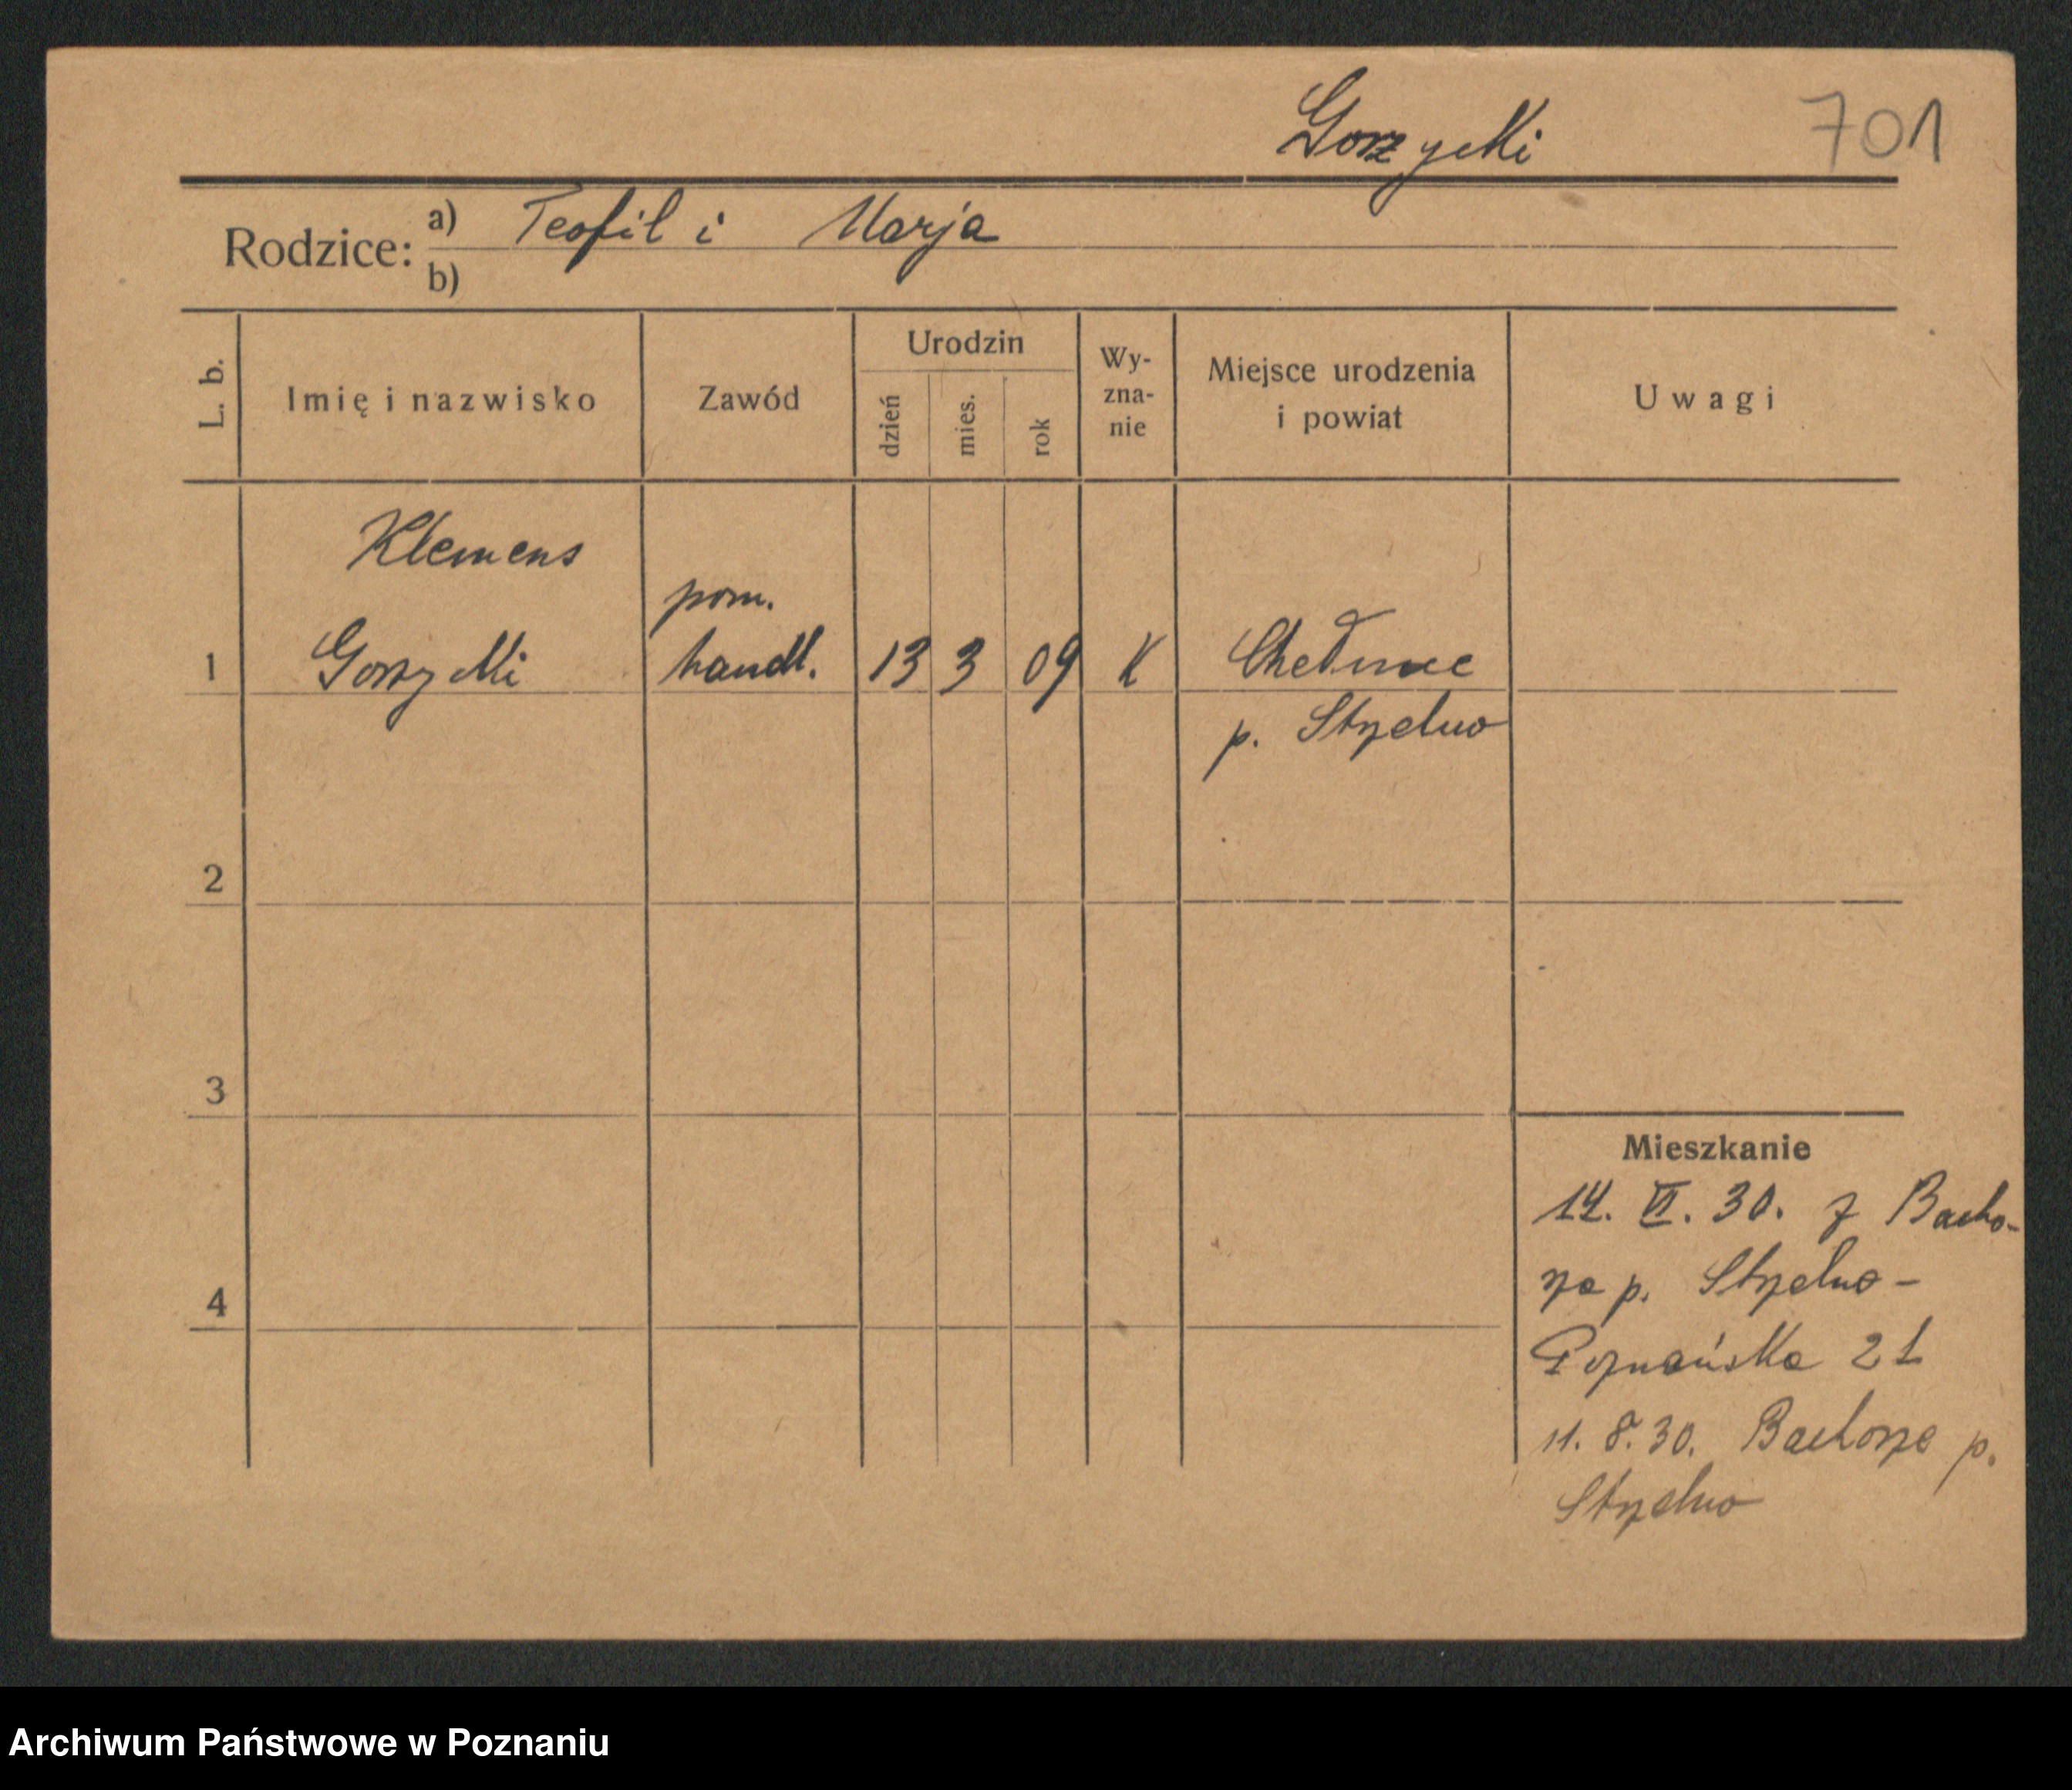 Gorzycki 701
Rodzice: a) Teofil i Marja
b)
L. b. Imię i nazwisko Zawód Urodzin dzień mies. rok Wy-zna-nie Miejsce urodzenia i powiat Uwagi
Klemens
pom.
1 Gorzycki handl. 13 3 09 K Chełmce
p. Strzelno
2
3
Mieszkanie
14. VI. 30. z Bacho-
rza p. Strzelno –
4
Poznańska 21
11. 8. 30. Bachorze p.
Strzelno
Archiwum Państwowe w Poznaniu